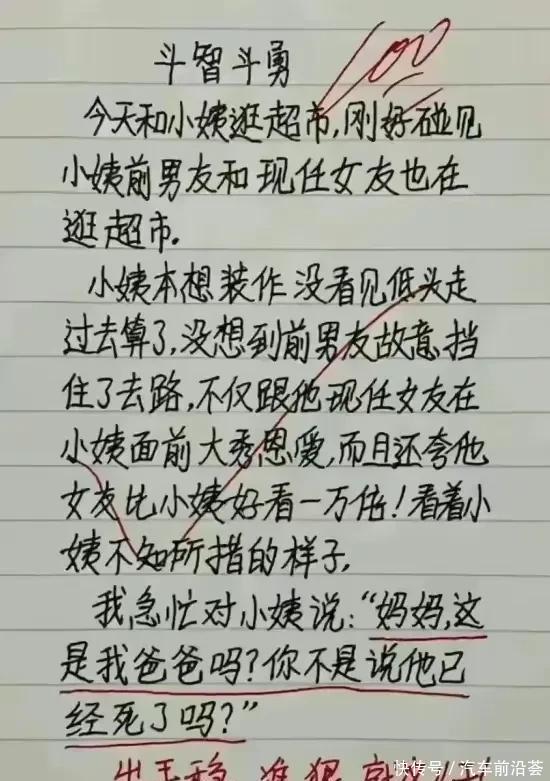 100
斗智斗勇
今天和小姨逛超市,刚好碰见
小姨前男友和现任女友也在
逛超市.
小姨本想装作没看见低头走
过去算了,没想到前男友故意挡
住了去路,不仅跟他现任女友在
小姨面前大秀恩爱,而且还夸他
女友比小姨好看一万倍!看着小
姨不知所措的样子.
我急忙对小姨说:“妈妈,这
是我爸爸吗?你不是说他已
经死了吗?”
出手稳 准 狠
快传号/汽车前沿荟